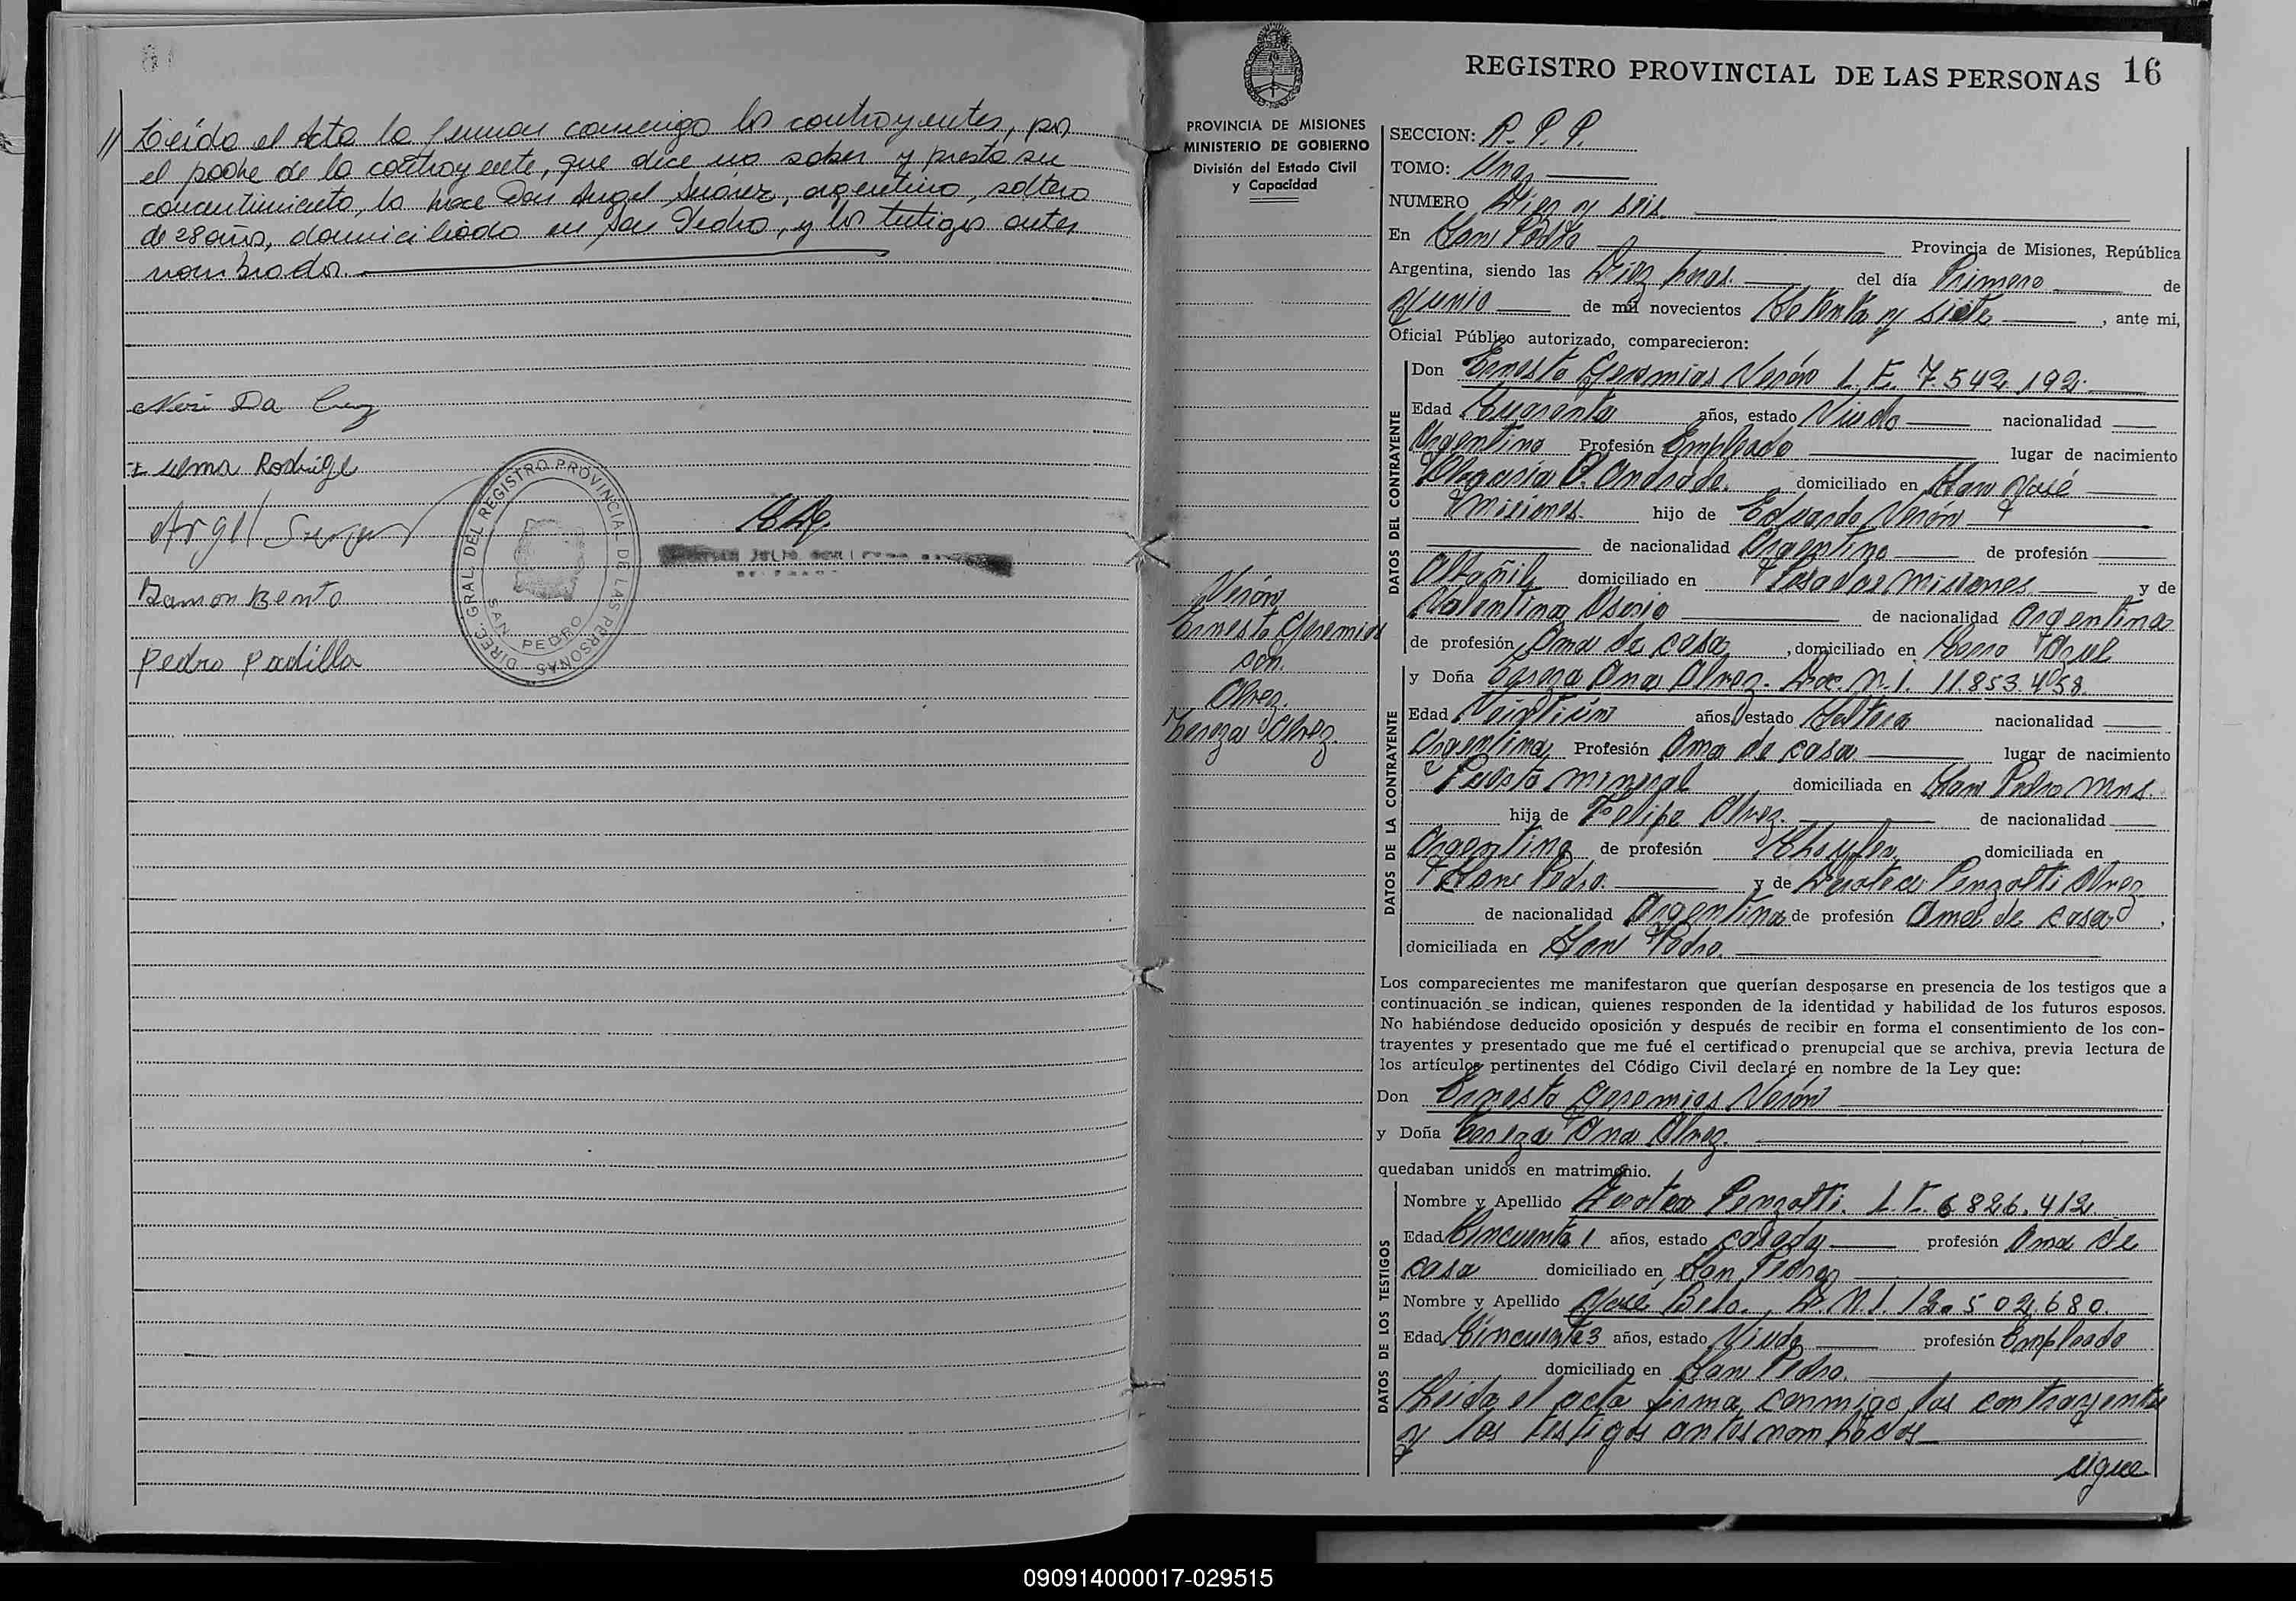 // Leída el Acta la firman conmigo los contrayentes, por
el padre de la contrayente, que dice no saber y presta su
concentimiento, lo hace Don Angel Suárez, argentino, soltero
de 28 años, domiciliado en San Pedro, y los testigos antes
nombrados.
Neri Da Cruz
Telma Rodrige
Angel Suarez
Ramon Bento
Pedro Padilla
DIREC. GRAL. DEL REGISTRO PROVINCIAL DE LAS PERSONAS
SAN PEDRO
REGISTRO PROVINCIAL DE LAS PERSONAS 16
PROVINCIA DE MISIONES
MINISTERIO DE GOBIERNO
División del Estado Civil
y Capacidad
Verón
Ernesto Geremias
con
Alvez.
Tereza Alvez.
SECCION: R. P. P.
TOMO: Uno
NUMERO Diez y seis.
En San Pedro Provincia de Misiones, República
Argentina, siendo las Diez horas. del día Primero de
Junio de mil novecientos Setenta y siete, ante mi,
Oficial Público autorizado, comparecieron:
DATOS DEL CONTRAYENTE
Don Ernesto Geremias Verón L. E. 7.542.192.
Edad Cuarenta años, estado Viudo nacionalidad
Argentino Profesión Empleado lugar de nacimiento
Olegario V. Andrade. domiciliado en San José
Misiones. hijo de Eduardo Verón
de nacionalidad Argentino de profesión
Albañil domiciliado en Posadas Misiones y de
Valentina Osorio de nacionalidad Argentina
de profesión Ama de casa, domiciliado en Cerro Azul
DATOS DE LA CONTRAYENTE
y Doña Tereza Ana Alvez. Doc. N.I. 11.853.458.
Edad Veintiún años, estado Soltera nacionalidad
Argentina, Profesión Ama de casa lugar de nacimiento
Puerto mineral domiciliada en San Pedro Mns.
hija de Felipe Alvez. de nacionalidad
Argentino de profesión Choyfer domiciliada en
San Pedro. y de Dorotea Penzotti Alvez
de nacionalidad Argentina de profesión Ama de casa,
domiciliada en San Pedro.
Los comparecientes me manifestaron que querían desposarse en presencia de los testigos que a
continuación se indican, quienes responden de la identidad y habilidad de los futuros esposos.
No habiéndose deducido oposición y después de recibir en forma el consentimiento de los con-
trayentes y presentado que me fué el certificado prenupcial que se archiva, previa lectura de
los artículos pertinentes del Código Civil declaré en nombre de la Ley que:
Don Ernesto Geremias Verón
y Doña Tereza Ana Alvez.
quedaban unidos en matrimonio.
DATOS DE LOS TESTIGOS
Nombre y Apellido Dorotea Penzotti. L.E. 6.826.412.
Edad Cincuenta 1 años, estado casada profesión Ama de
casa domiciliado en San Pedro
Nombre y Apellido José Belo. D.N.I. 12.502.680.
Edad Cincuenta 3 años, estado Viudo profesión Empleado
domiciliado en San Pedro.
Leida el acta firma, conmigo los contrayentes
y los testigos antes nombrados
sigue
090914000017-029515